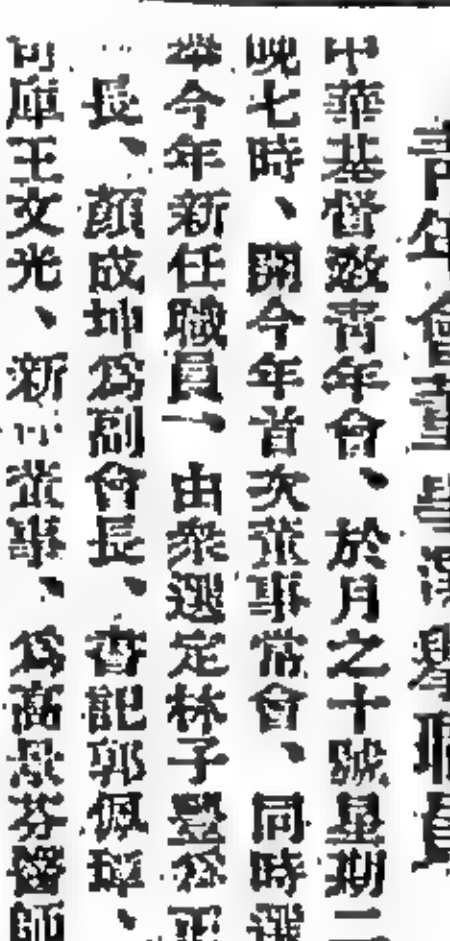 青年會董事選舉職員
中華基督教青年會、於月之十號星期二
晚七時、開今年首次董事常會、同時選
舉今年新任職員、由衆選定林子豐爲正
長、顏成坤爲副會長、書記郭佩璋、
司庫王文光、新 董事、爲高 芬醫師